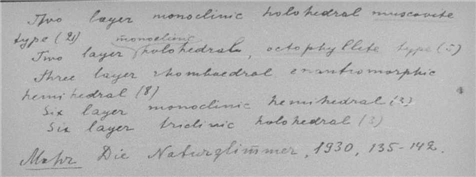 Two layer monoclinic holohedral muscovite
type (21)
monoclinic
Two layer holohedral, octophyllite type (5)
Three layer rhombaedral enantiomorphic
hemihedral (8)
Six layer monoclinic hemihedral (3)
Six layer triclinic holohedral (3)
Mahr Die Naturglimmer, 1930, 135-142.